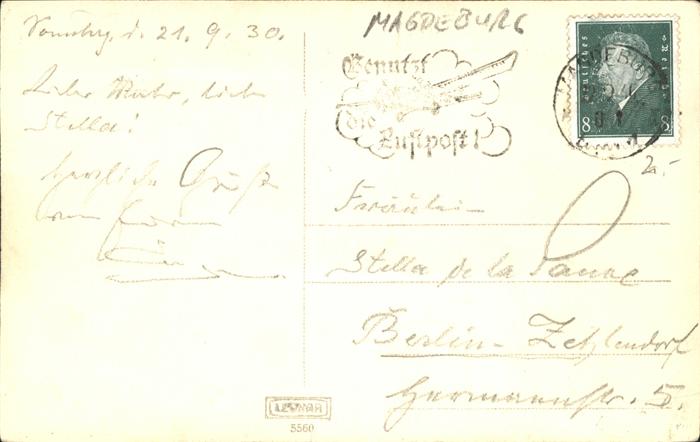 Sonntag, d. 21. 9. 30.
Liebe Mutter, liebe
Stella!
herzliche Grüße
von
MAGDEBURG
Benutzt
die
Luftpost!
MAGDEBURG
Deutsches Reich
8 8
2.-
Fräulein
Stella de la
Berlin-Zehlendorf
Hermannstr. 5.
5560